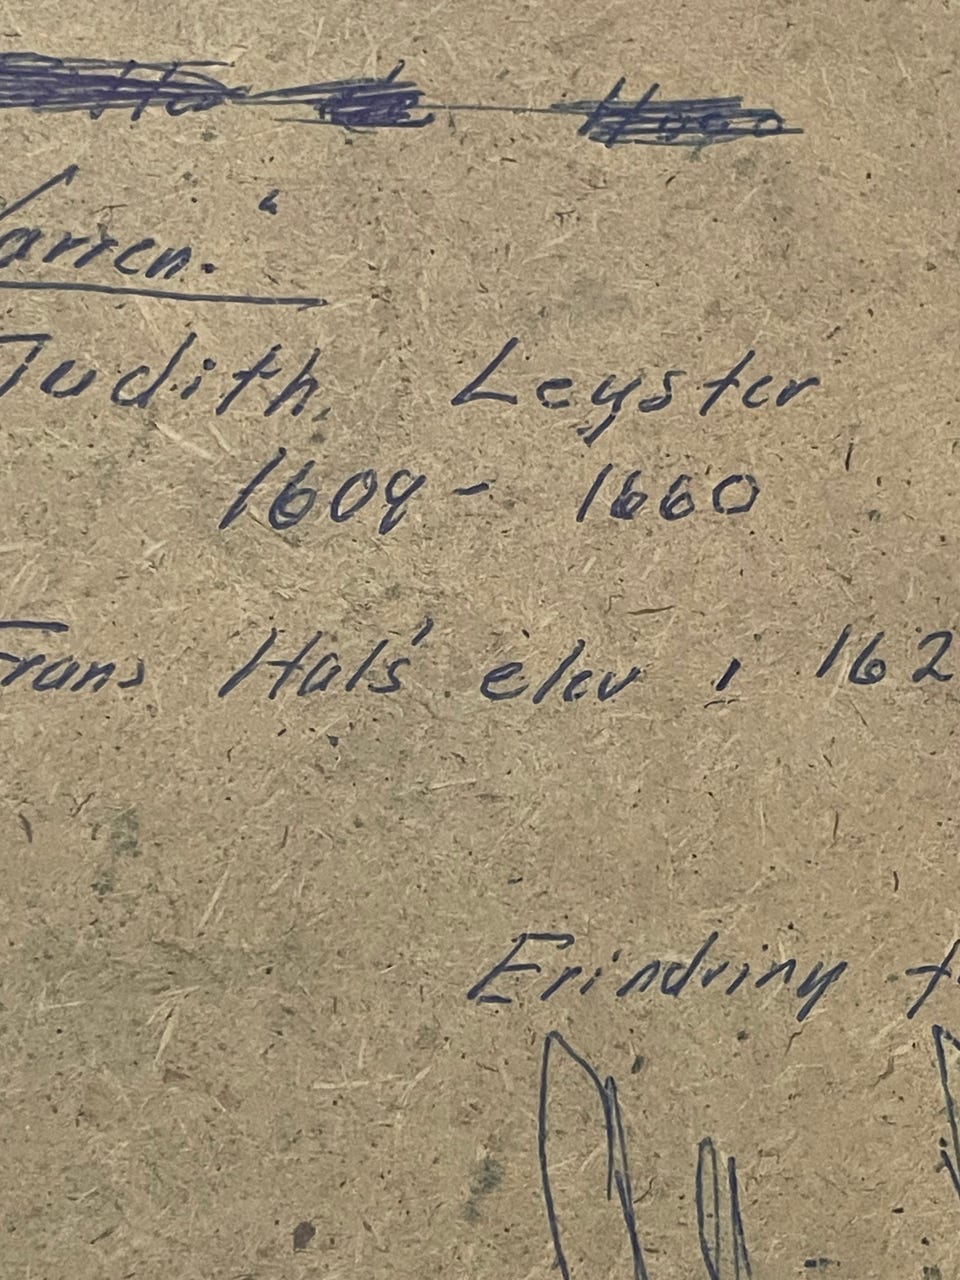 arren."
Judith Leyster
1609 - 1660
Frans Hals' elev i 162
Erindring